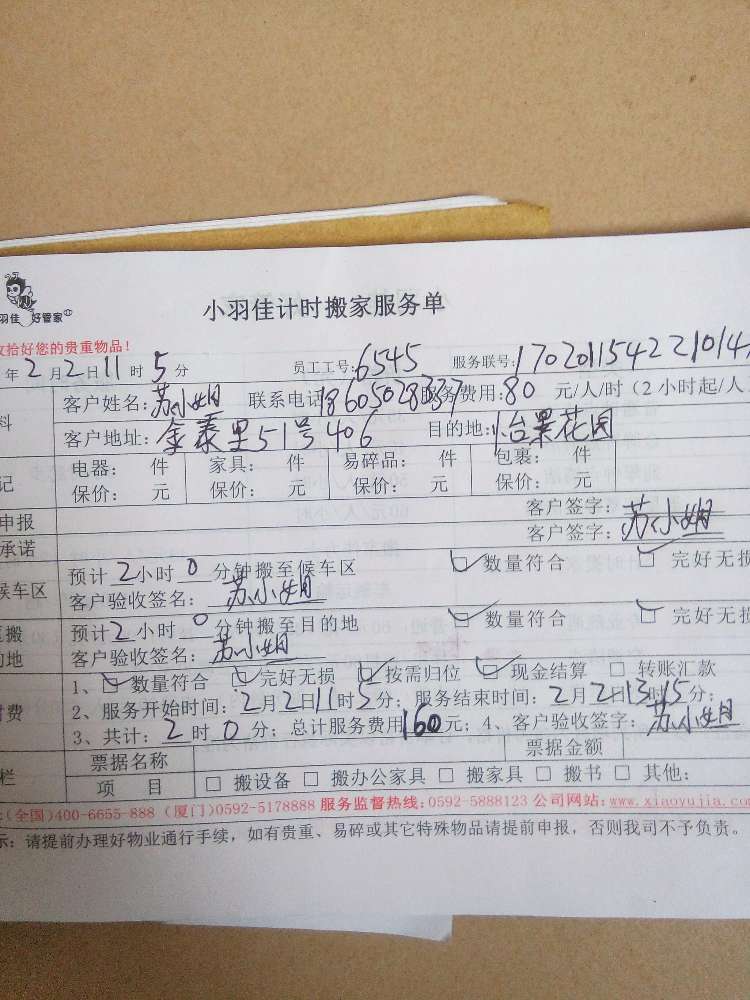 羽佳 好管家
小羽佳计时搬家服务单
收拾好您的贵重物品!
年2月2日11时5分 员工工号:6545 服务联号:170201154221014
料 客户姓名:苏小姐 联系电话 服务费用:80 元/人/时(2小时起/人
客户地址:金泰里51号406 目的地:怡景花园
记 电器: 件 家具: 件 易碎品: 件 包裹: 件
保价: 元 保价: 元 保价: 元 保价: 元
申报 客户签字:苏小姐
承诺 客户签字:
候车区 预计2小时0分钟搬至候车区 ☑数量符合 ☑完好无损
客户验收签名:苏小姐
搬 预计2小时0分钟搬至目的地 ☑数量符合 ☑完好无损
的地 客户验收签名:苏小姐
1、☑数量符合 ☑完好无损 ☑按需归位 ☑现金结算 □转账汇款
付费 2、服务开始时间:2月2日11时5分;服务结束时间:2月2日13时15分;
3、共计:2时0分;总计服务费用160元;4、客户验收签字:苏小姐
票据名称 票据金额
栏 项 目 □搬设备 □搬办公家具 □搬家具 □搬书 □其他:
:(全国)400-6655-888 (厦门)0592-5178888 服务监督热线:0592-5888123 公司网站:www.xiaoyujia.com
示:请提前办理好物业通行手续,如有贵重、易碎或其它特殊物品请提前申报,否则我司不予负责。